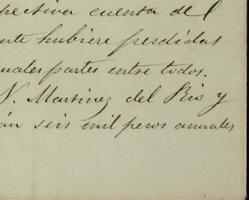 pectiva cuenta del
nte hubiere perdidas
uales partes entre todos.
N. Martinez del Rio y
án seis mil pesos anuales